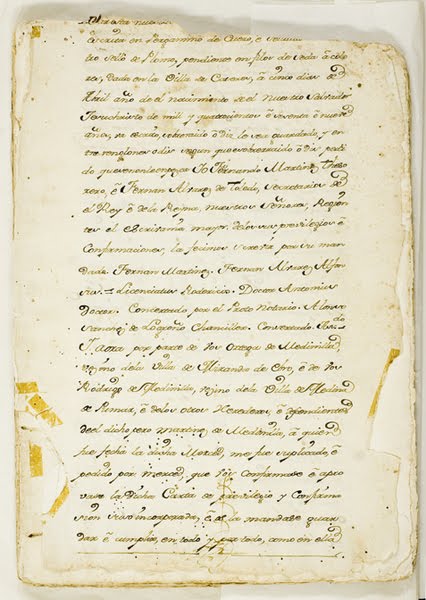 escrita en Pergamino de Cuero, é
tro sello de Plomo, pendiente en filos de seda á colo
res, Dada en la Villa de Caceres, á cinco dias de
Abril año de el nacimiento de el nuestro Salvador
Jesuchristo de mil y quattrocientos é
años,
tre renglones
do Yo Fernando Martinez Theso
rero, é Fernan Alvarez de Toledo, Secretarios de
el Rey é dela Reina, nuestros Señores, Regen
tes el Escrivania mayor delos sus previlegios é
Confirmaciones, la fecimos screvir por su man
dado. Fernan Martinez. Fernan Alvarez. Alfon
sus. Licenciatus Rodericus. Doctor Antonius
Doctor. Concertado por el Proto Notario. Alonso
Sanchez de Logroño Chanciller. Concertado.
Y Aora por parte de Vos Ortega de Medinilla,
vezino dela Villa de Miranda de Ebro, é de Vos
Rodrigo de Medinilla, vezino dela Villa de Medina
de Pumar, é delos otros Herederos, é
deel dicho, Pero Martinez de Medinilla, á quien
fue fecha la dicha Merced, me fue suplicado, é
pedido por merced, que Vos confirmase é apro
vase la Dicha Carta de previlegio y Confirma
cion suso incorporada, é la mandase guar
dar é cumplir, en todo y por todo, como en ella